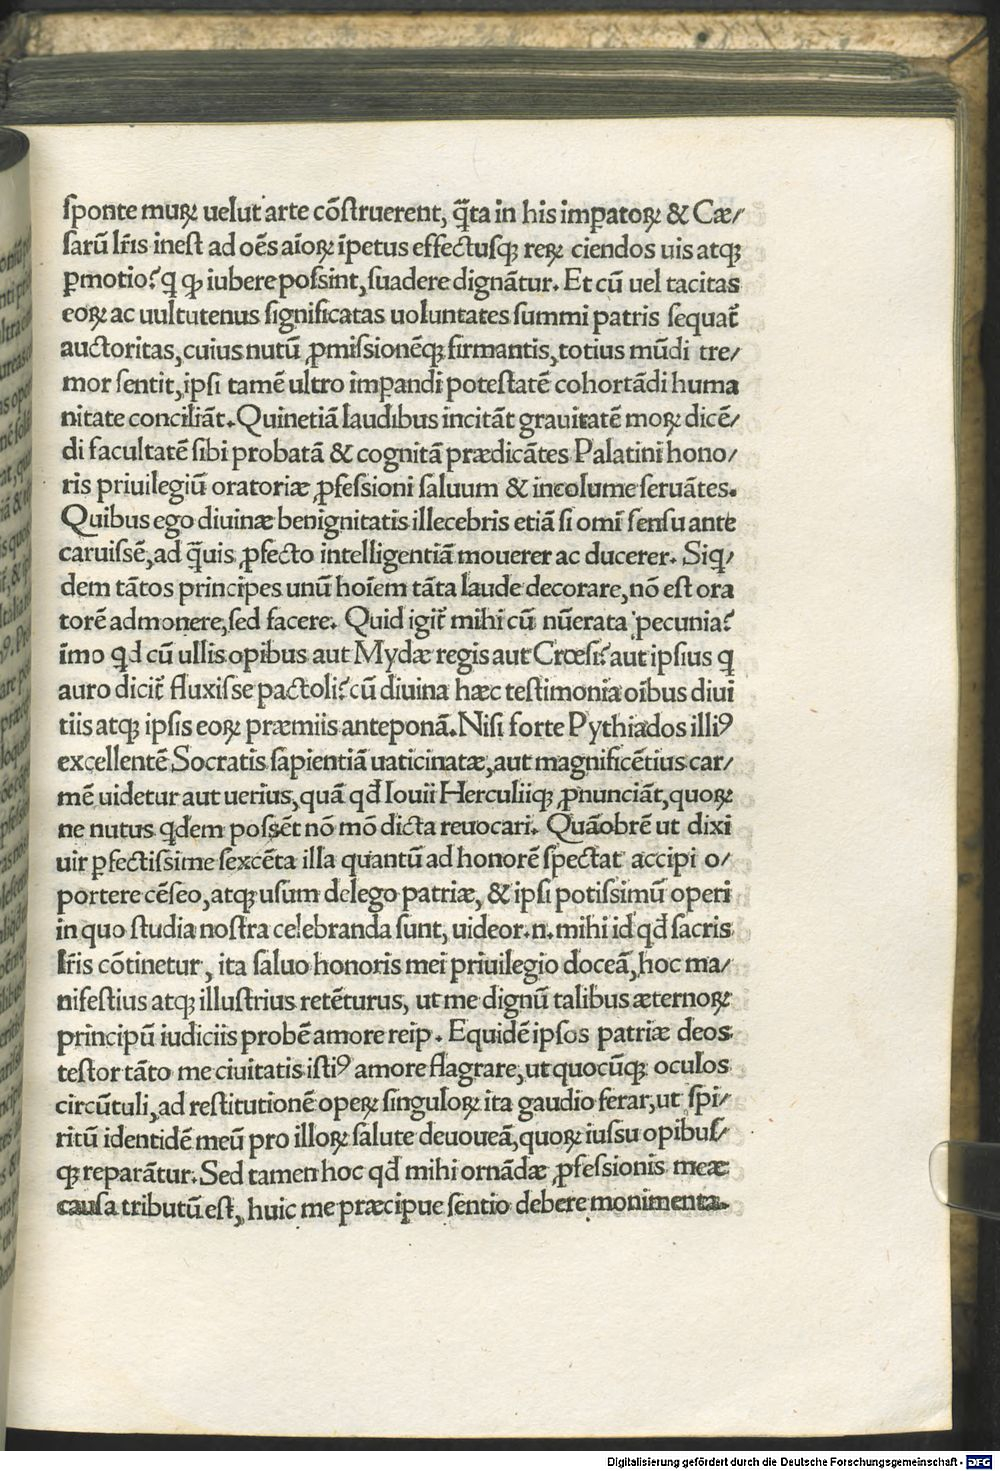 sponte muꝝ uelut arte cōstruerent, q̄ta in his imꝑatoꝝ & Cæ/
sarū lr̄is inest ad oēs aīoꝝ īpetus effectusqꝫ reꝝ ciendos uis atqꝫ
ꝑmotio? q̄ ꝙ iubere possint, suadere dignātur. Et cū uel tacitas
eoꝝ ac uultutenus significatas uoluntates summi patris sequat̄
auctoritas, cuius nutū ꝓmissionēqꝫ firmantis, totius mūdi tre/
mor sentit, ipsi tamē ultro imꝑandi potestatē cohortādi huma
nitate conciliāt. Quinetiā laudibus incitāt grauitatē moꝝ dicē/
di facultatē sibi probatā & cognitā prædicātes Palatini hono/
ris priuilegiū oratoriæ ꝓfessioni saluum & incolume seruātes.
Quibus ego diuinæ benignitatis illecebris etiā si omī sensu ante
caruissē, ad q̄uis ꝓfecto intelligentiā mouerer ac ducerer. Siq/
dem tātos principes unū hoīem tāta laude decorare, nō est ora
torē admonere, sed facere. Quid igit̄ mihi cū nūerata pecunia?
īmo qd cū ullis opibus aut Mydæ regis aut Crœsi? aut ipsius q̄
auro dicit̄ fluxisse pactoli? cū diuina hæc testimonia oībus diui
tiis atqꝫ ipsis eoꝝ præmiis anteponā. Nisi forte Pythiados illiꝰ
excellentē Socratis sapientiā uaticinatæ, aut magnificētius car/
mē uidetur aut uerius, quā qd̄ Iouii Herculiiqꝫ ꝓnunciāt, quoꝝ
ne nutus qdem possēt nō mō dicta reuocari. Quāobrē ut dixi
uir ꝑfectissime sexcēta illa quantū ad honorē spectat accipi o/
portere cēseo, atqꝫ usum delego patriæ, & ipsi potissimū operi
in quo studia nostra celebranda sunt, uideor .n. mihi id qd̄ sacris
lr̄is cōtinetur, ita saluo honoris mei priuilegio doceā, hoc ma/
nifestius atqꝫ illustrius retēturus, ut me dignū talibus æternoꝝ
principū iudiciis probē amore reip. Equidē ipsos patriæ deos
testor tāto me ciuitatis istiꝰ amore flagrare, ut quocūqꝫ oculos
circūtuli, ad restitutionē opeꝝ singuloꝝ ita gaudio ferar, ut spi/
ritū identidē meū pro illoꝝ salute deuoueā, quoꝝ iussu opibus/
qꝫ reparātur. Sed tamen hoc qd̄ mihi ornādæ ꝓfessionis meæ
causa tributū est, huic me præcipue sentio debere monimenta.
Digitalisierung gefördert durch die Deutsche Forschungsgemeinschaft - DFG